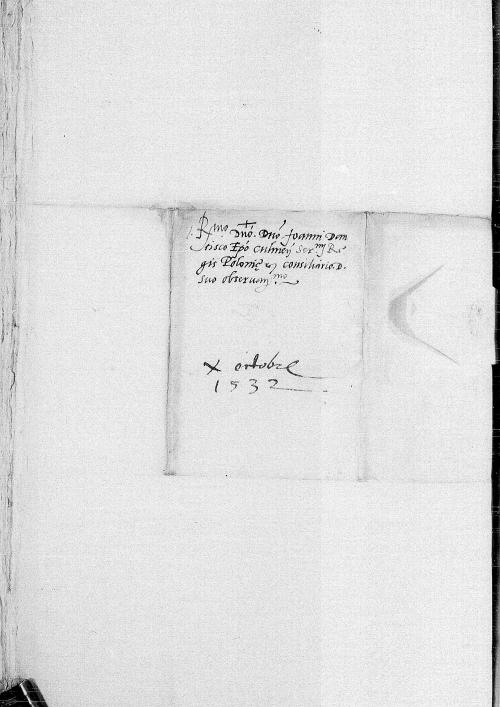 R^mo D\bar{n}o. D\bar{n}o Joanni Dan
tisco Ep\bar{o} Culmen\bar{} Ser^mi Re
gis Polonię consiliario. D.
suo obseruan^mo
X octobr
1532